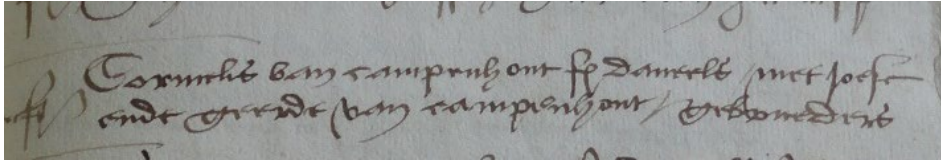 Cornelis van campenhout fs daneels / met joese
ende geerde van campenhout / gebrueders